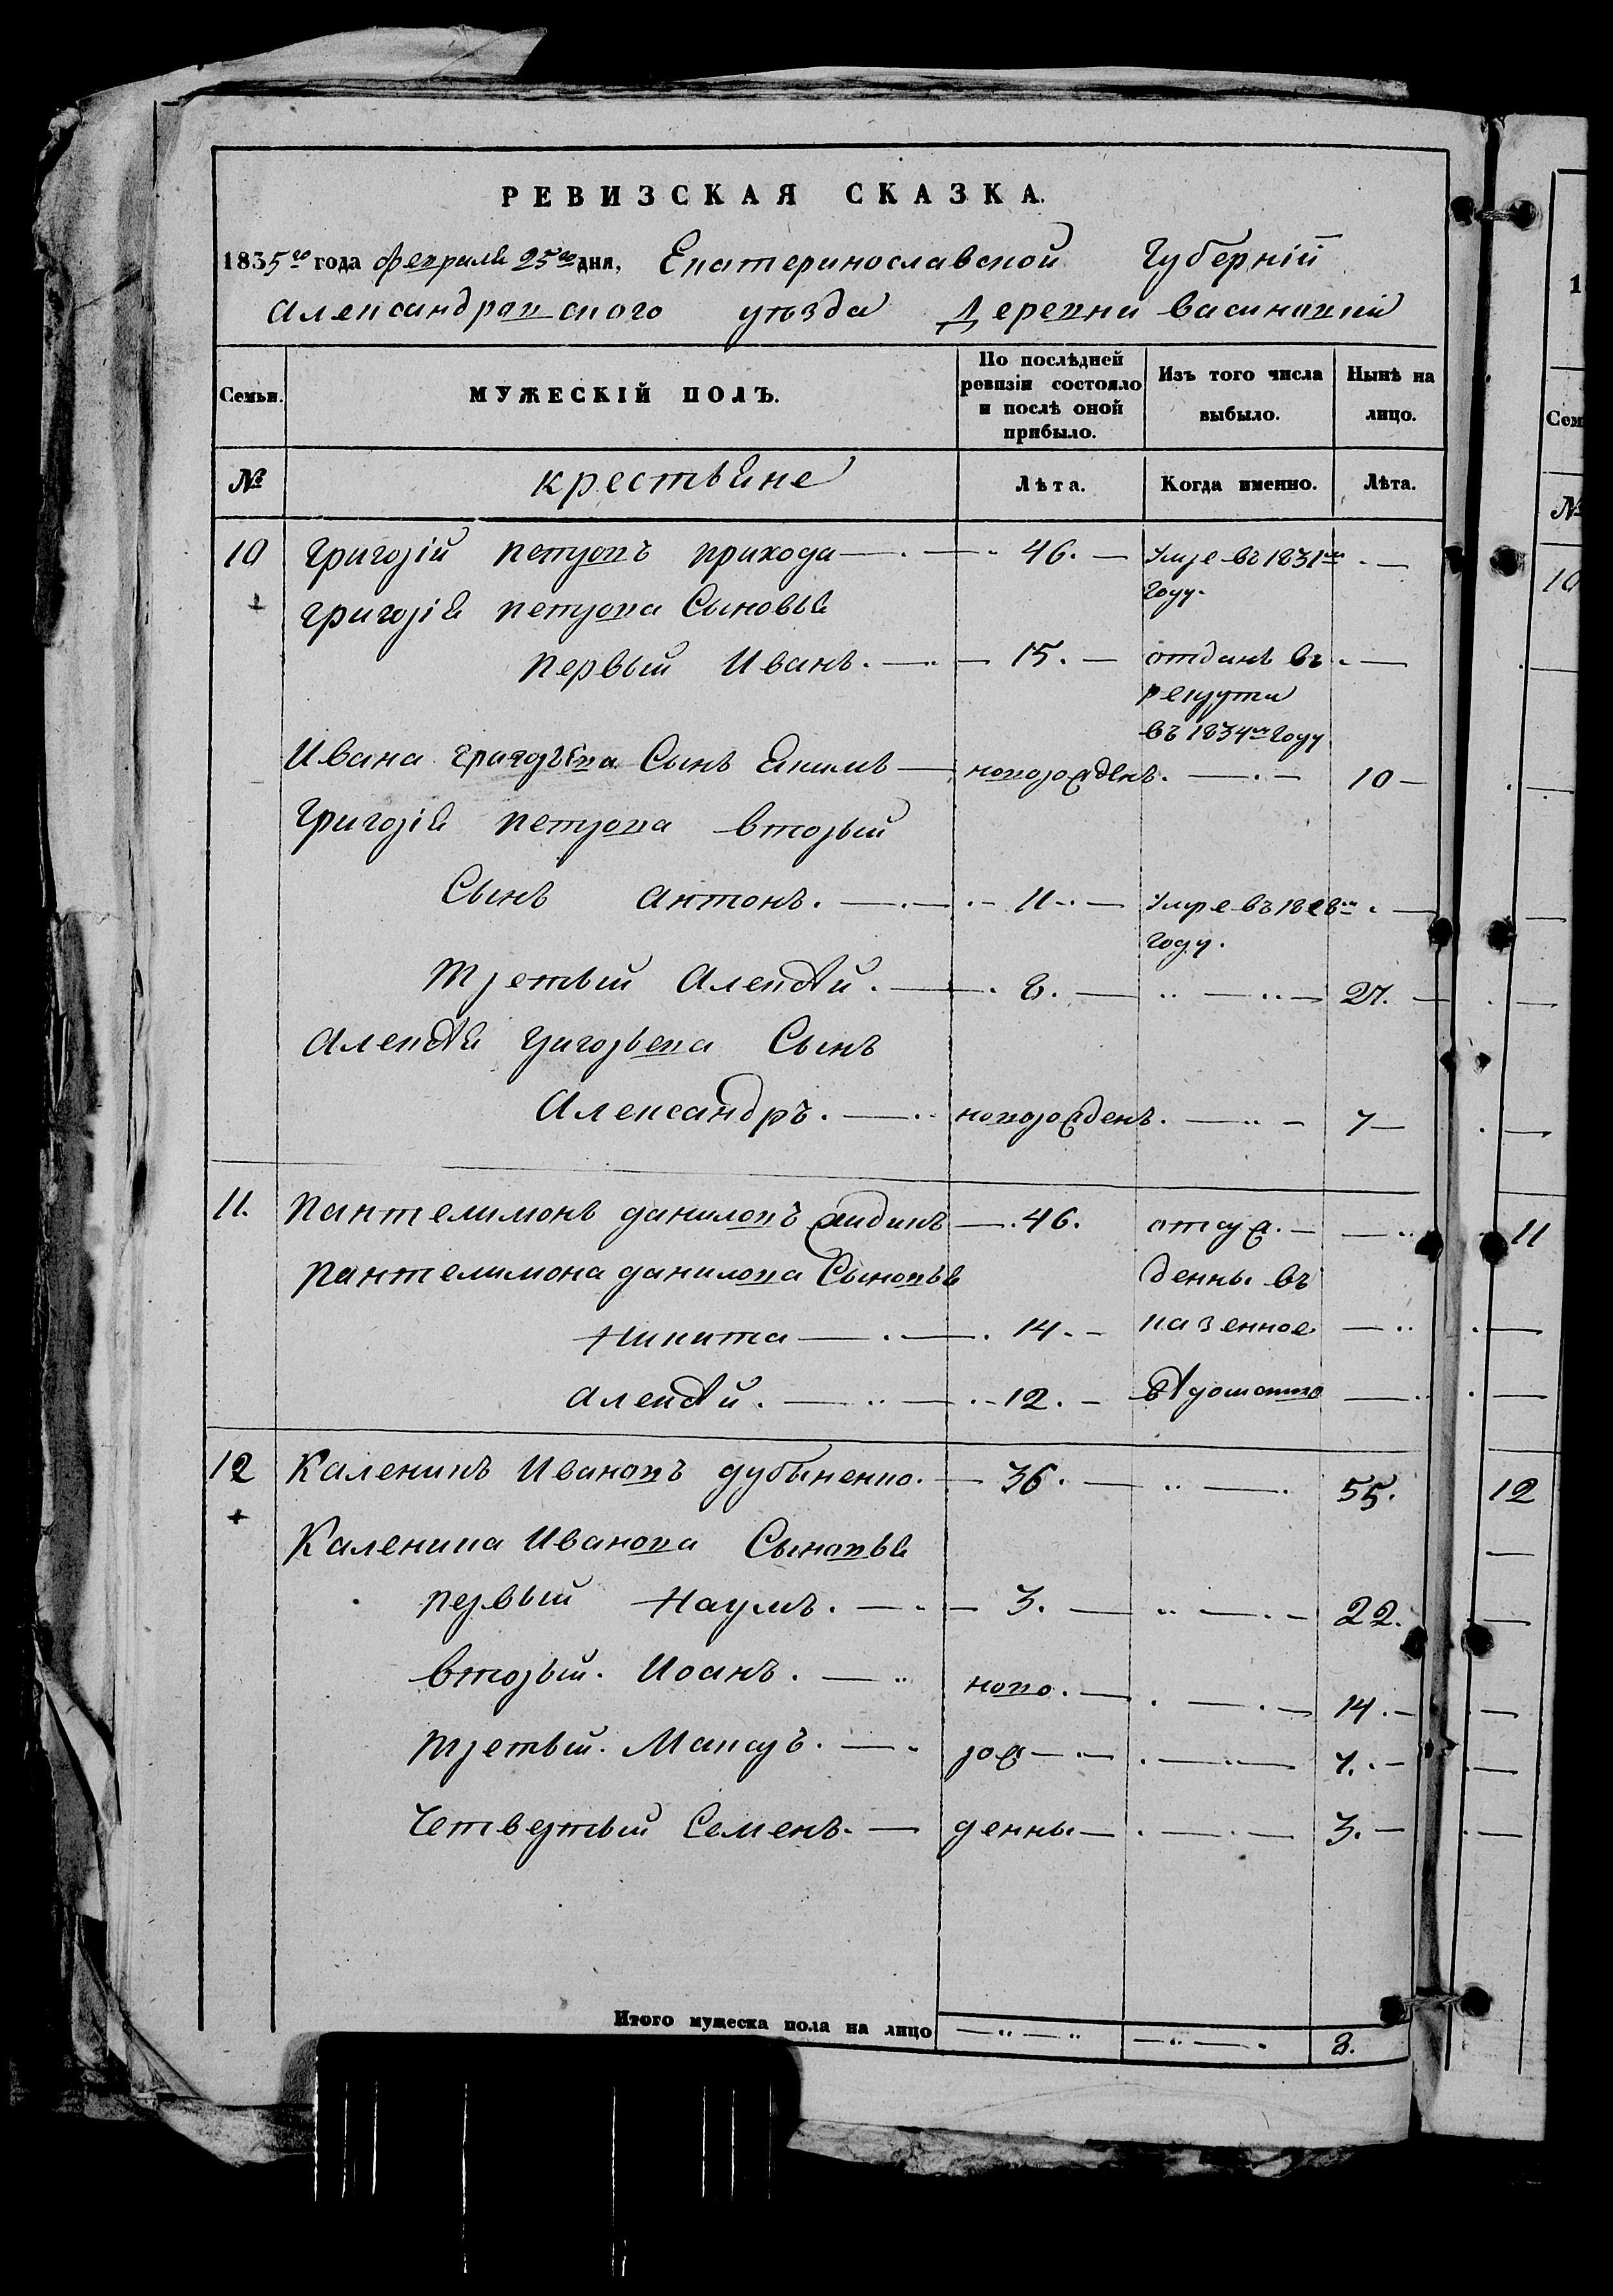 РЕВИЗСКАЯ СКАЗКА.
1835го года февраля 25го дня, Екатеринославской Губерніи
Александровского уѣзда Деревни
Семьи. МУЖЕСКІЙ ПОЛЪ. По послѣдней ревизіи состояло и послѣ оной прибыло. Изъ того числа выбыло. Нынѣ на лицо.
№ крестьяне Лѣта. Когда именно. Лѣта.
10 Григорій Петровъ 46. Умре въ 1831м
Григорія Петрова Сыновья году.
первый Иванъ. 15. отданъ въ
рекруты
въ 1834м году
Ивана Григорьева Сынъ Якимъ новорожденъ. 10
Григорія Петрова вторый
Сынъ Антонъ. 11 Умре въ 1828м
году.
Третьий Алексѣй. 8. 27.
Алексѣя Григорьева Сынъ
Александръ. новорожденъ. 7
11. Пантелимонъ Даниловъ 46. отсуж
Пантелимона Данилова Сыновья денны въ
Никита 14. казенное
Алексѣй. 12. вѣдомство
12 Каленикъ Ивановъ Дубыненко. 36. 55.
Каленика Иванова Сыновья
первый Наумъ. 3. 22.
вторый. Иоанъ. ново. 14.
Третьий. Макаръ. рож 7.
Четвертый Семенъ. денны 3.
Итого мужеска пола на лицо 8.
1
Сем
№
10
11
12